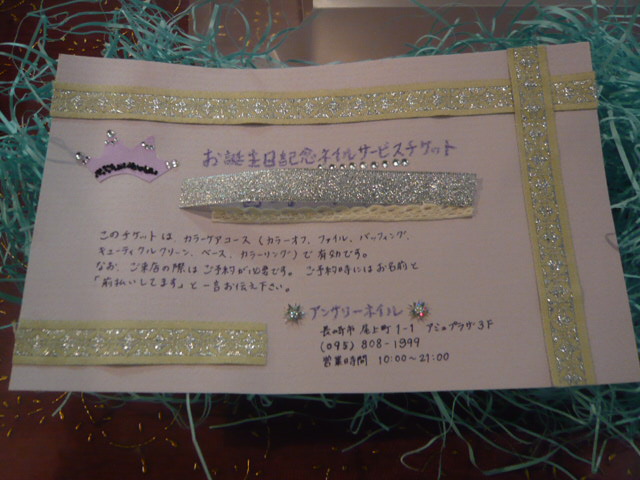 お誕生日記念ネイルサービスチケット
このチケットは、カラーケアコース（カラーオフ、ファイル、バッフィング、
キューティクルクリーン、ベース、カラーリング）で有効です。
なお、ご来店の際はご予約が必要です。ご予約時にはお名前と
「前払いしてます」と一言お伝え下さい。
アンサリーネイル
長崎市尾上町1-1 アミュプラザ3F
(095) 808-1999
営業時間 10:00～21:00